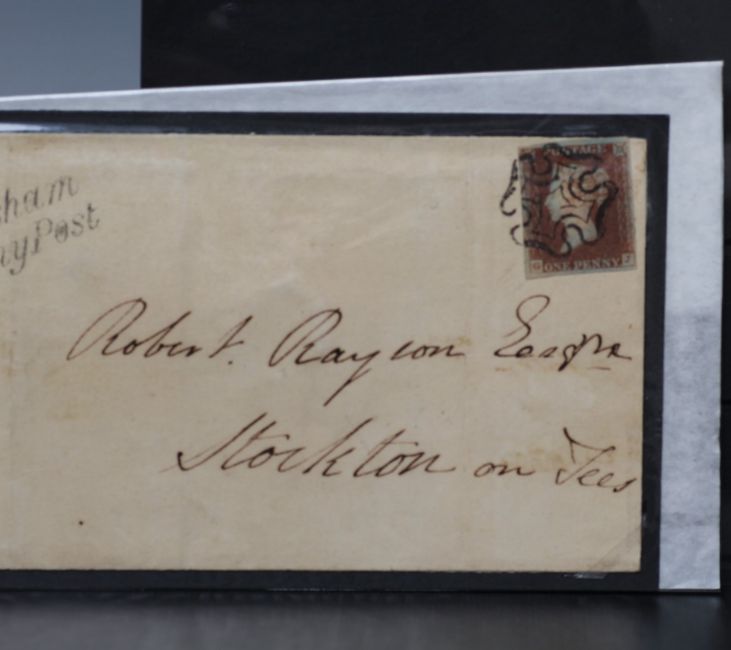 ham
nyPost
POSTAGE
ONE PENNY
Robert. Rayson Esqre
Stockton on Tees